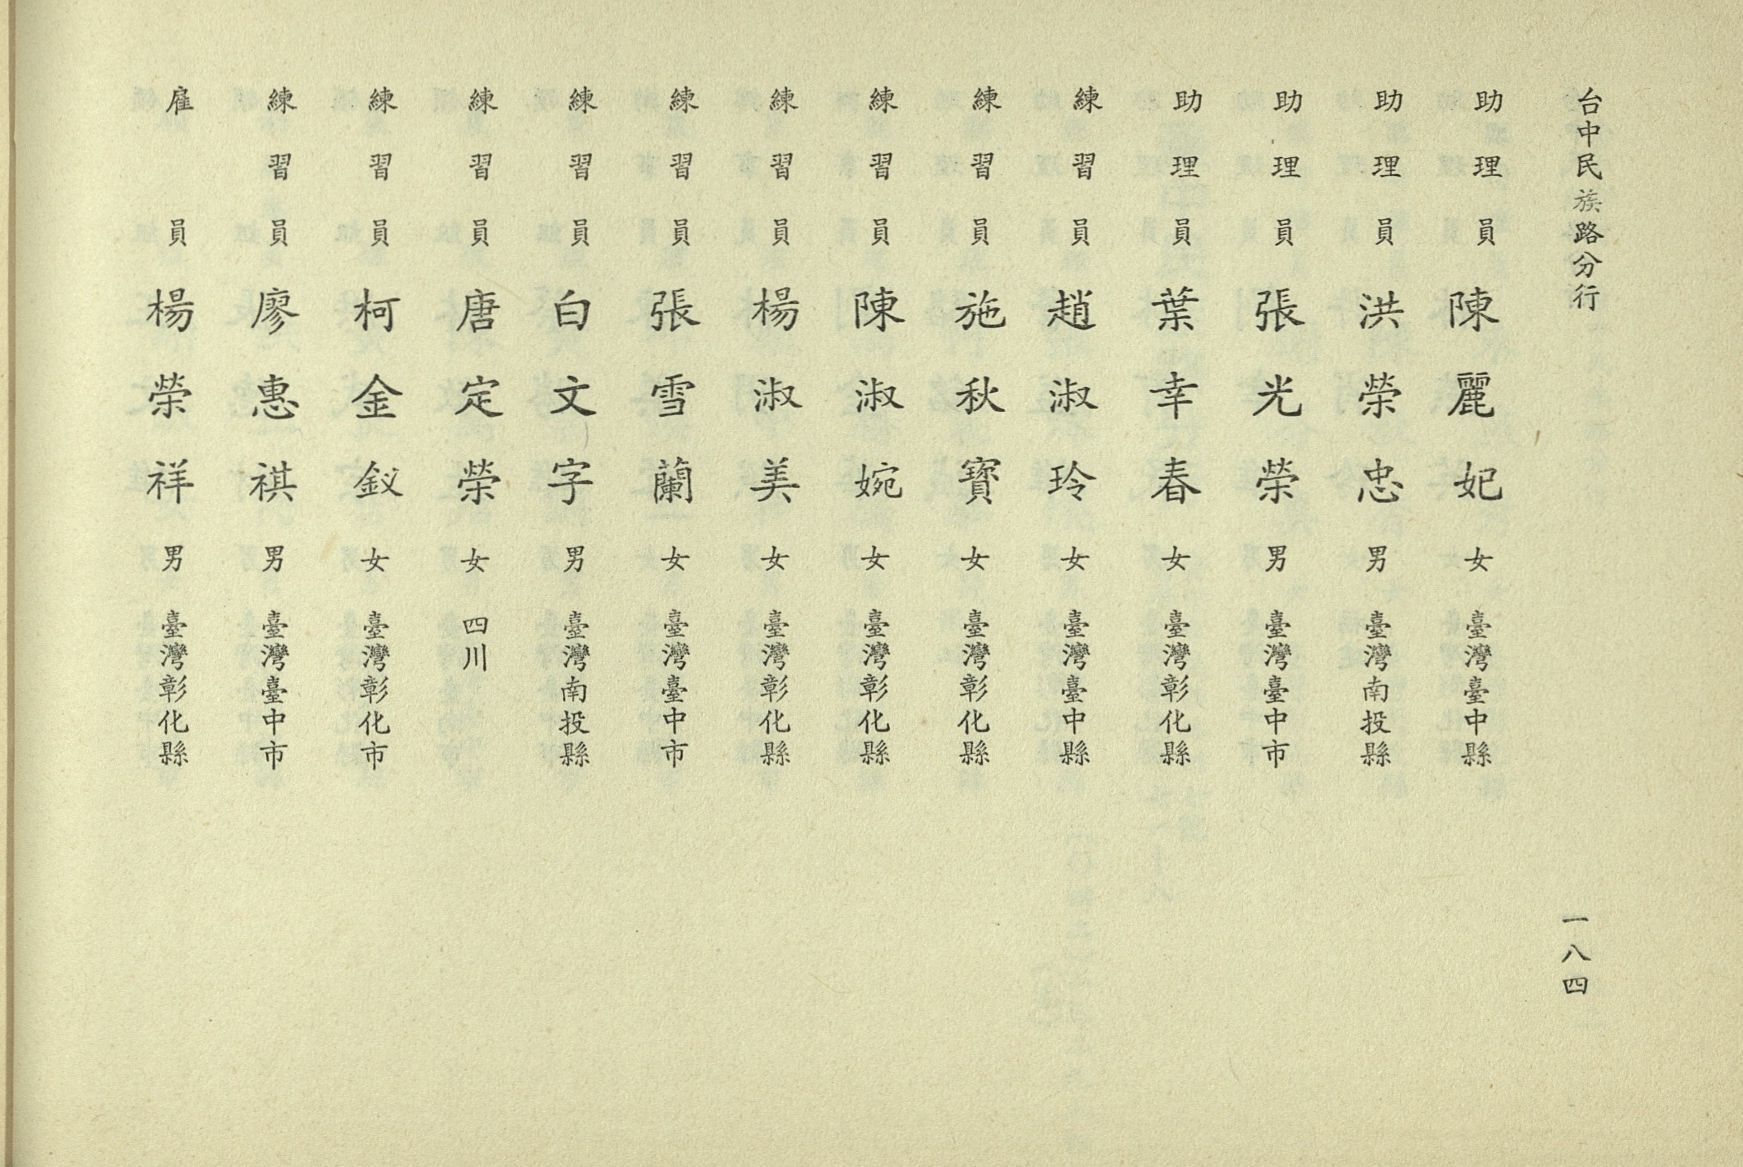 台中民族路分行
一八四
助理員 陳麗妃 女 臺灣臺中縣
助理員 洪榮忠 男 臺灣南投縣
助理員 張光榮 男 臺灣臺中市
助理員 葉幸春 女 臺灣彰化縣
練習員 趙淑玲 女 臺灣臺中縣
練習員 施秋寶 女 臺灣彰化縣
練習員 陳淑婉 女 臺灣彰化縣
練習員 楊淑美 女 臺灣彰化縣
練習員 張雪蘭 女 臺灣臺中市
練習員 白文字 男 臺灣南投縣
練習員 唐定榮 女 四川
練習員 柯金釵 女 臺灣彰化市
練習員 廖惠祺 男 臺灣臺中市
雇員 楊榮祥 男 臺灣彰化縣